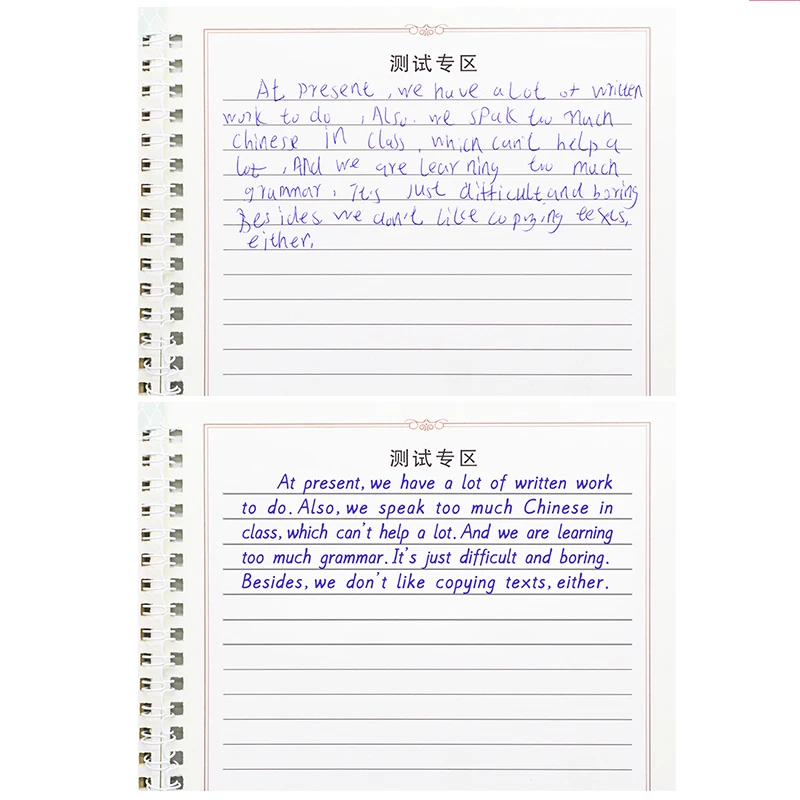 测试专区
At present, we have a lot of written
work to do , Also. we spak too much
Chinese in class, which can't help a
lot , And we are learning too much
grammar. It's just difficult and boring
Besides we don't like copying texts,
either.
测试专区
At present, we have a lot of written work
to do. Also, we speak too much Chinese in
class, which can't help a lot. And we are learning
too much grammar. It's just difficult and boring.
Besides, we don't like copying texts, either.